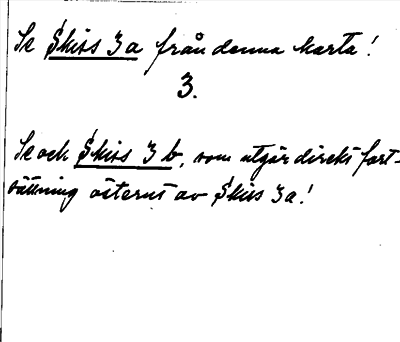 Se Skiss 3a från denna karta!
3.
Se och Skiss 3 b, som utgör direkt fort-
sättning österut av Skiss 3a!